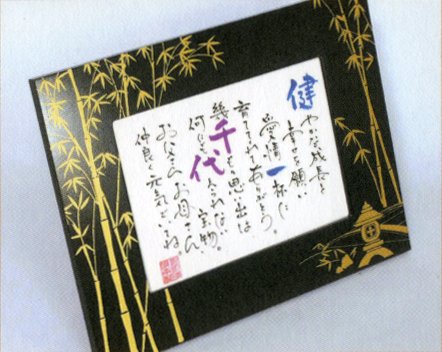 健やかな成長と
幸を願い
愛情一杯に
育ててくれてありがとう。
幾千もの思い出は
何にも代えられない宝物。
お父さんお母さん
仲良く元気でいてね。